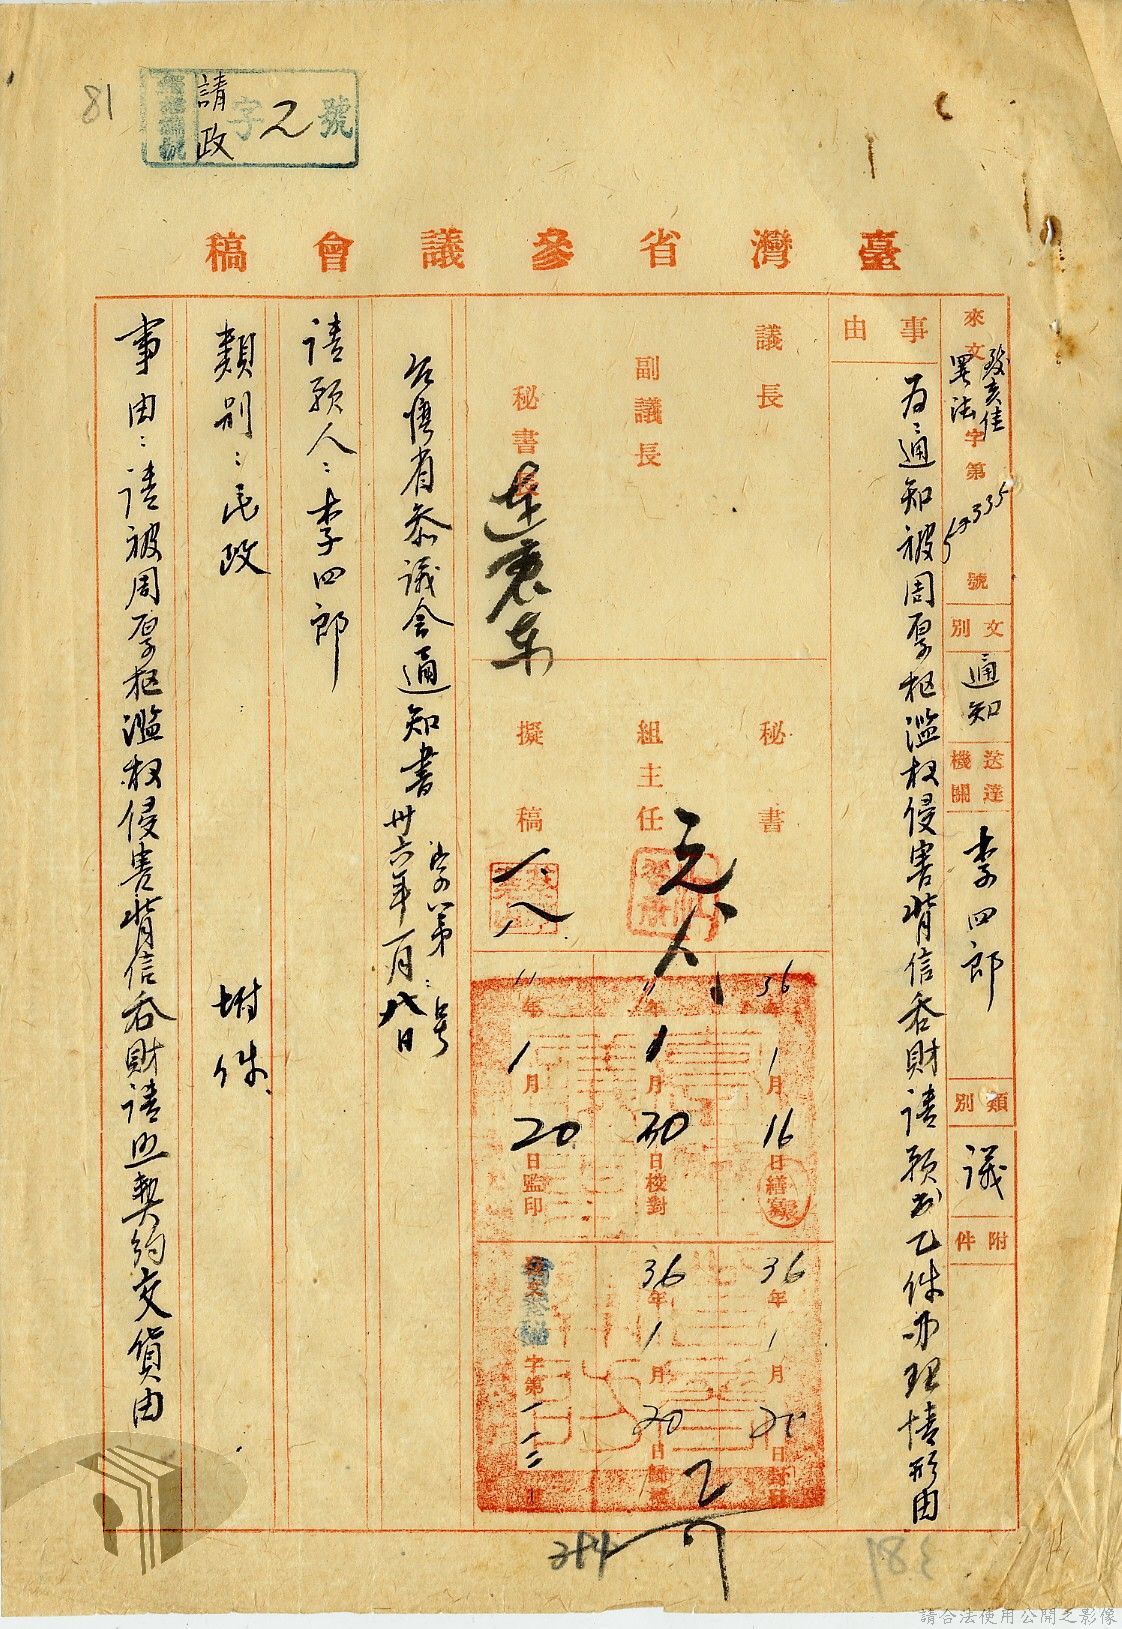 81
請政字乙號
臺灣省參議會稿
來文 字第 號
署法
文別
通知
送達機關
李四郎
類別
議
附件
事由
為通知被周厚枢濫权侵害背信吞財請願書乙件办理情形由
議長
副議長
秘書長
連震东
秘書
組主任
擬稿
一、八
36年1月16日繕寫
〃年1月20日校對
〃年1月20日監印
36年1月20日
36年1月20日
字第一一二
台湾省参議会通知書
字第 号
卅六年一月八日
請願人：李四郎
類別：民政
附件
事由：請被周厚枢濫权侵害背信吞財請照契約交貨由
384
381
請合法使用公開之影像